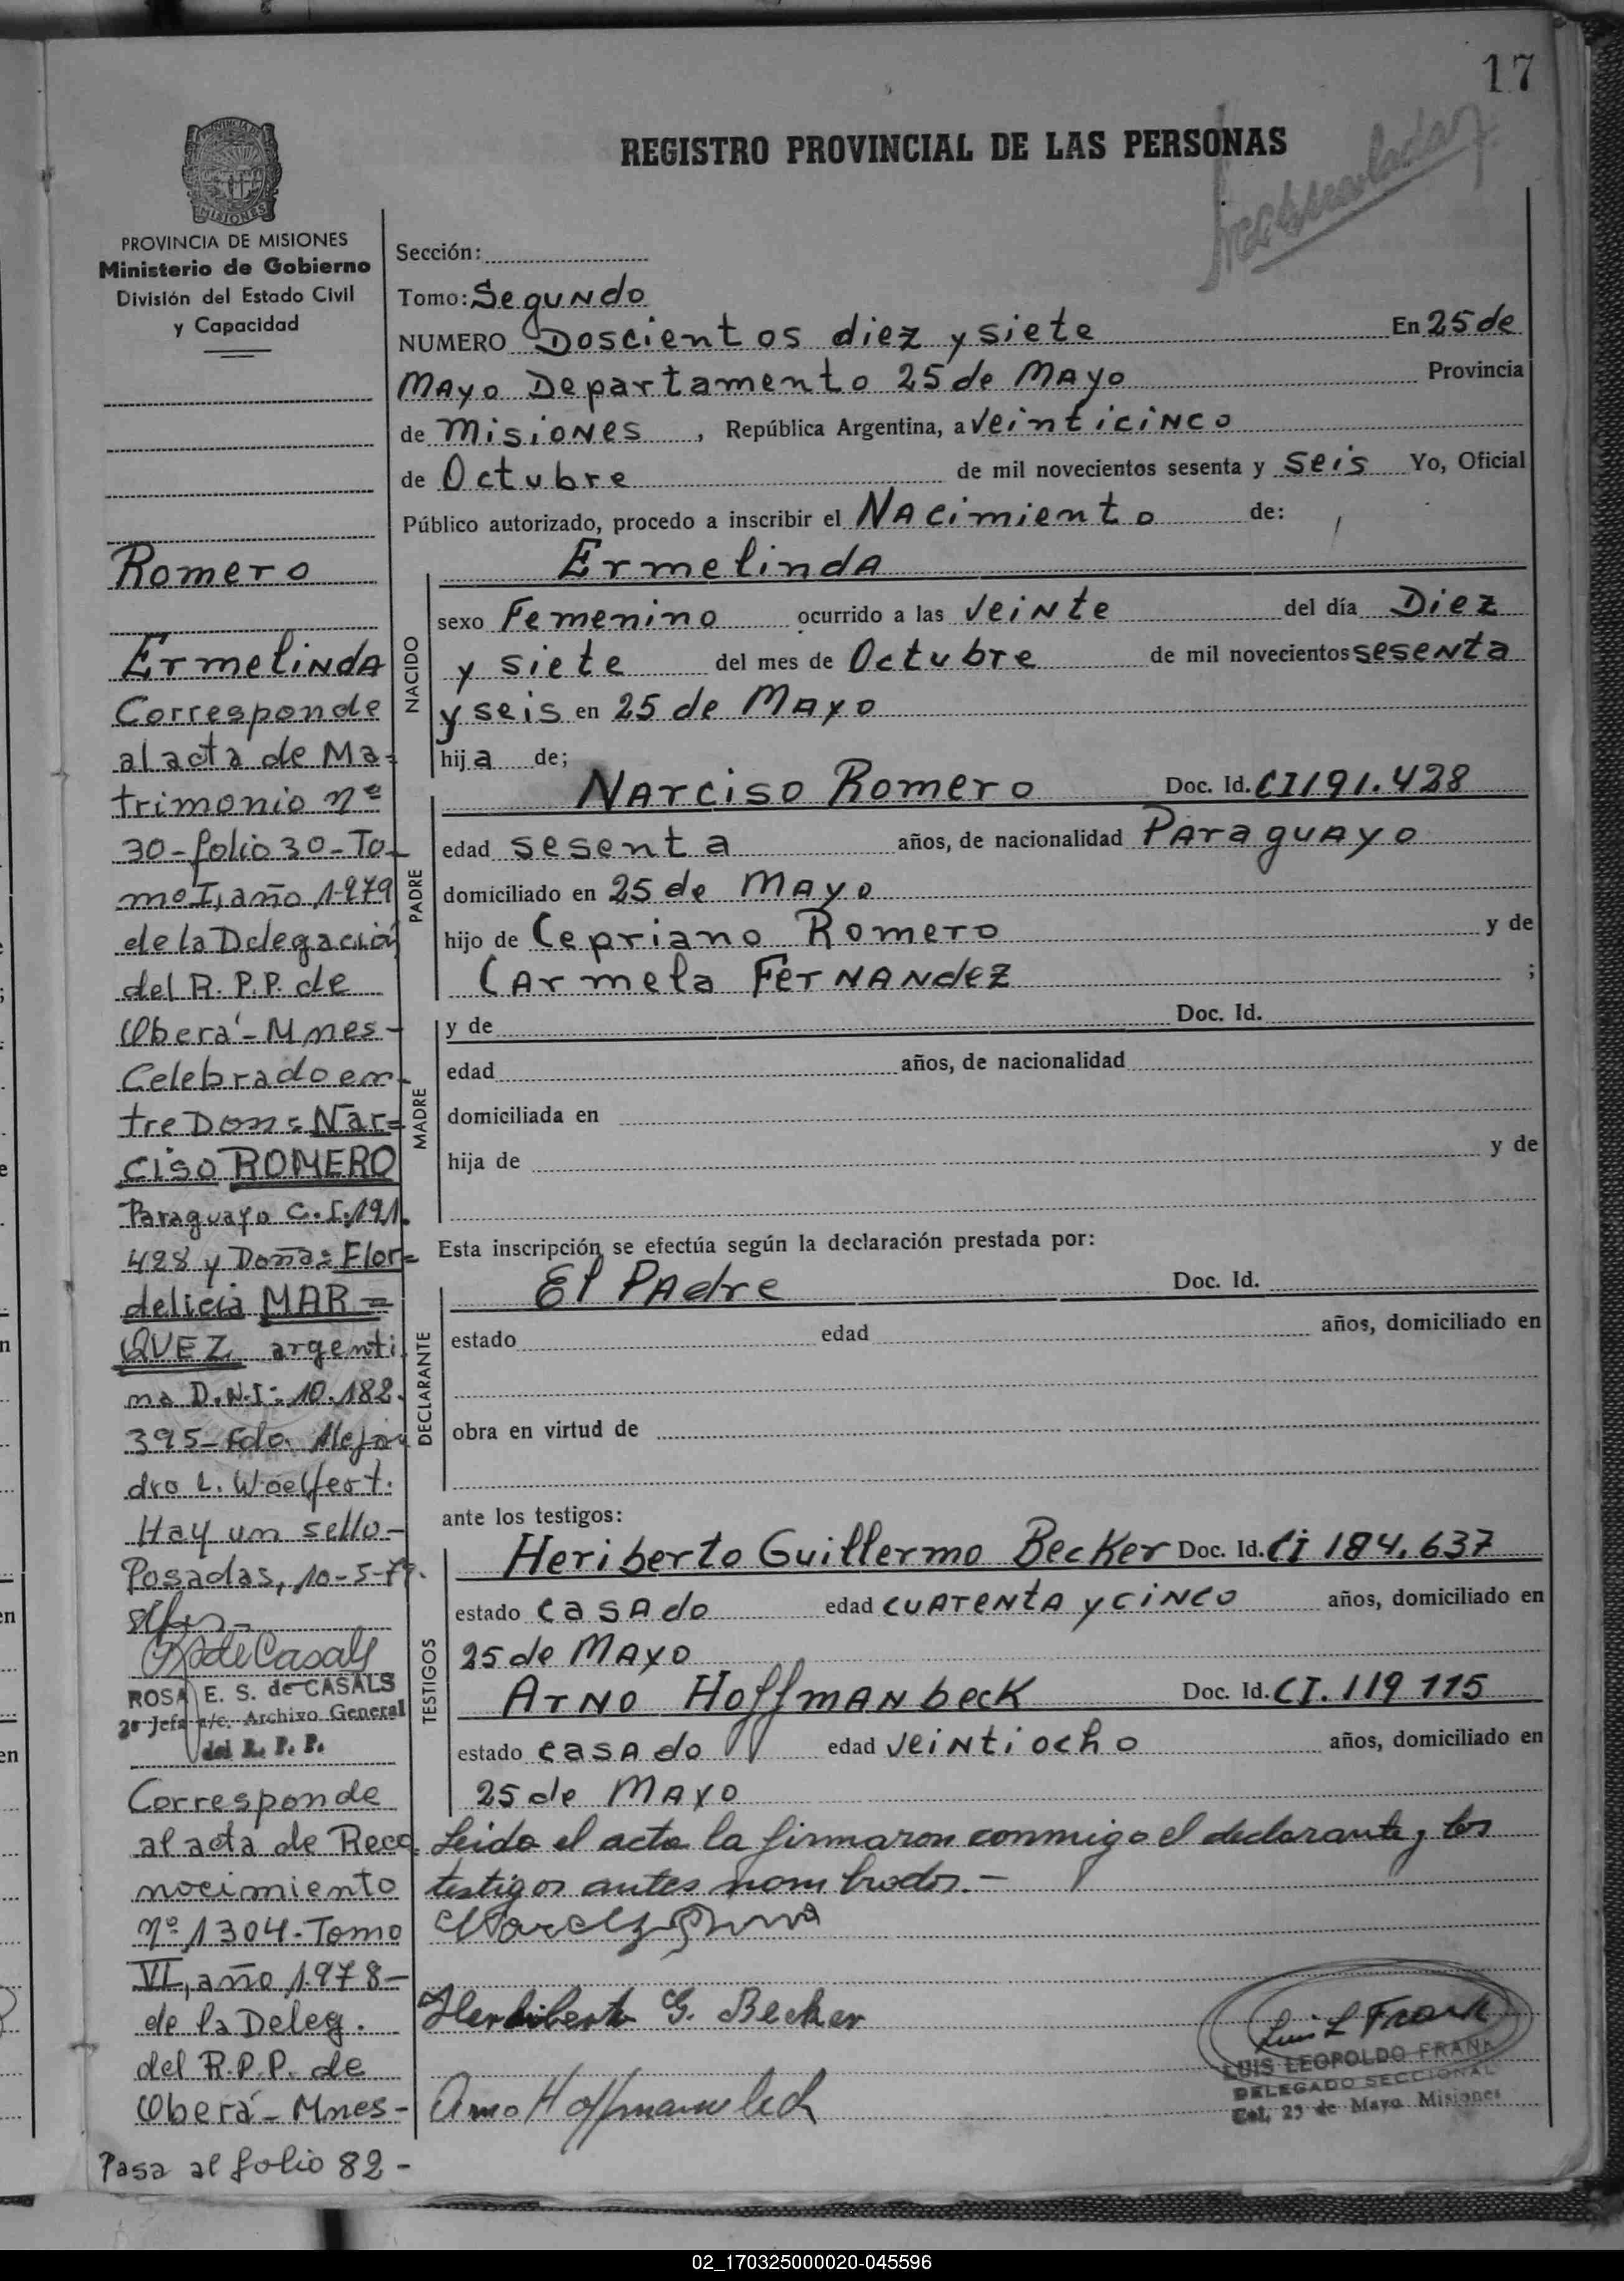 17
REGISTRO PROVINCIAL DE LAS PERSONAS
PROVINCIA DE MISIONES
Ministerio de Gobierno
División del Estado Civil
y Capacidad
Romero
Ermelinda
Corresponde
al acta de Ma-
trimonio nº
30-folio 30-To-
mo I, año 1979
de la Delegación
del R.P.P. de
Oberá-Mnes-
Celebrado en-
tre Don: Nar=
ciso ROMERO
Paraguayo C.I.191.
428 y Doña: Flor=
delicia MAR=
QUEZ argenti
na D.N.I: 10.182.
395-Fdo. Alejan
dro L. Woelfert.
Hay un sello-
Posadas, 10-5-79.
ROSA E. S. de CASALS
2º Jefa a/c. Archivo General
del R. P. P.
Corresponde
al acta de Reco
nocimiento
nº 1304-Tomo
VI, año 1.978-
de la Deleg.
del R.P.P. de
Oberá-Mnes-
Pasa al folio 82-
Sección:
Tomo: Segundo
NUMERO Doscientos diez y siete En 25 de
Mayo Departamento 25 de Mayo Provincia
de Misiones, República Argentina, a veinticinco
de Octubre de mil novecientos sesenta y seis Yo, Oficial
Público autorizado, procedo a inscribir el Nacimiento de:
NACIDO
Ermelinda
sexo Femenino ocurrido a las veinte del día Diez
y siete del mes de Octubre de mil novecientos sesenta
y seis en 25 de Mayo
hija de;
PADRE
Narciso Romero Doc. Id. CI 191.428
edad sesenta años, de nacionalidad Paraguayo
domiciliado en 25 de Mayo
hijo de Cepriano Romero y de
Carmela Fernandez ;
MADRE
y de Doc. Id.
edad años, de nacionalidad
domiciliada en
hija de y de
Esta inscripción se efectúa según la declaración prestada por:
DECLARANTE
El Padre Doc. Id.
estado edad años, domiciliado en
obra en virtud de
ante los testigos:
TESTIGOS
Heriberto Guillermo Becker Doc. Id. Ci 184.637
estado casado edad cuarenta y cinco años, domiciliado en
25 de Mayo
Arno Hoffmanbeck Doc. Id. CI. 119 115
estado casado edad veintiocho años, domiciliado en
25 de Mayo
Leida el acta la firmaron conmigo el declarante y los
testigos antes nombrados.-
Heriberto G. Becker
Arno Hoffmanbeck
Luis L Frank
LUIS LEOPOLDO FRANK
DELEGADO SECCIONAL
Col. 25 de Mayo Misiones
02_170325000020-045596